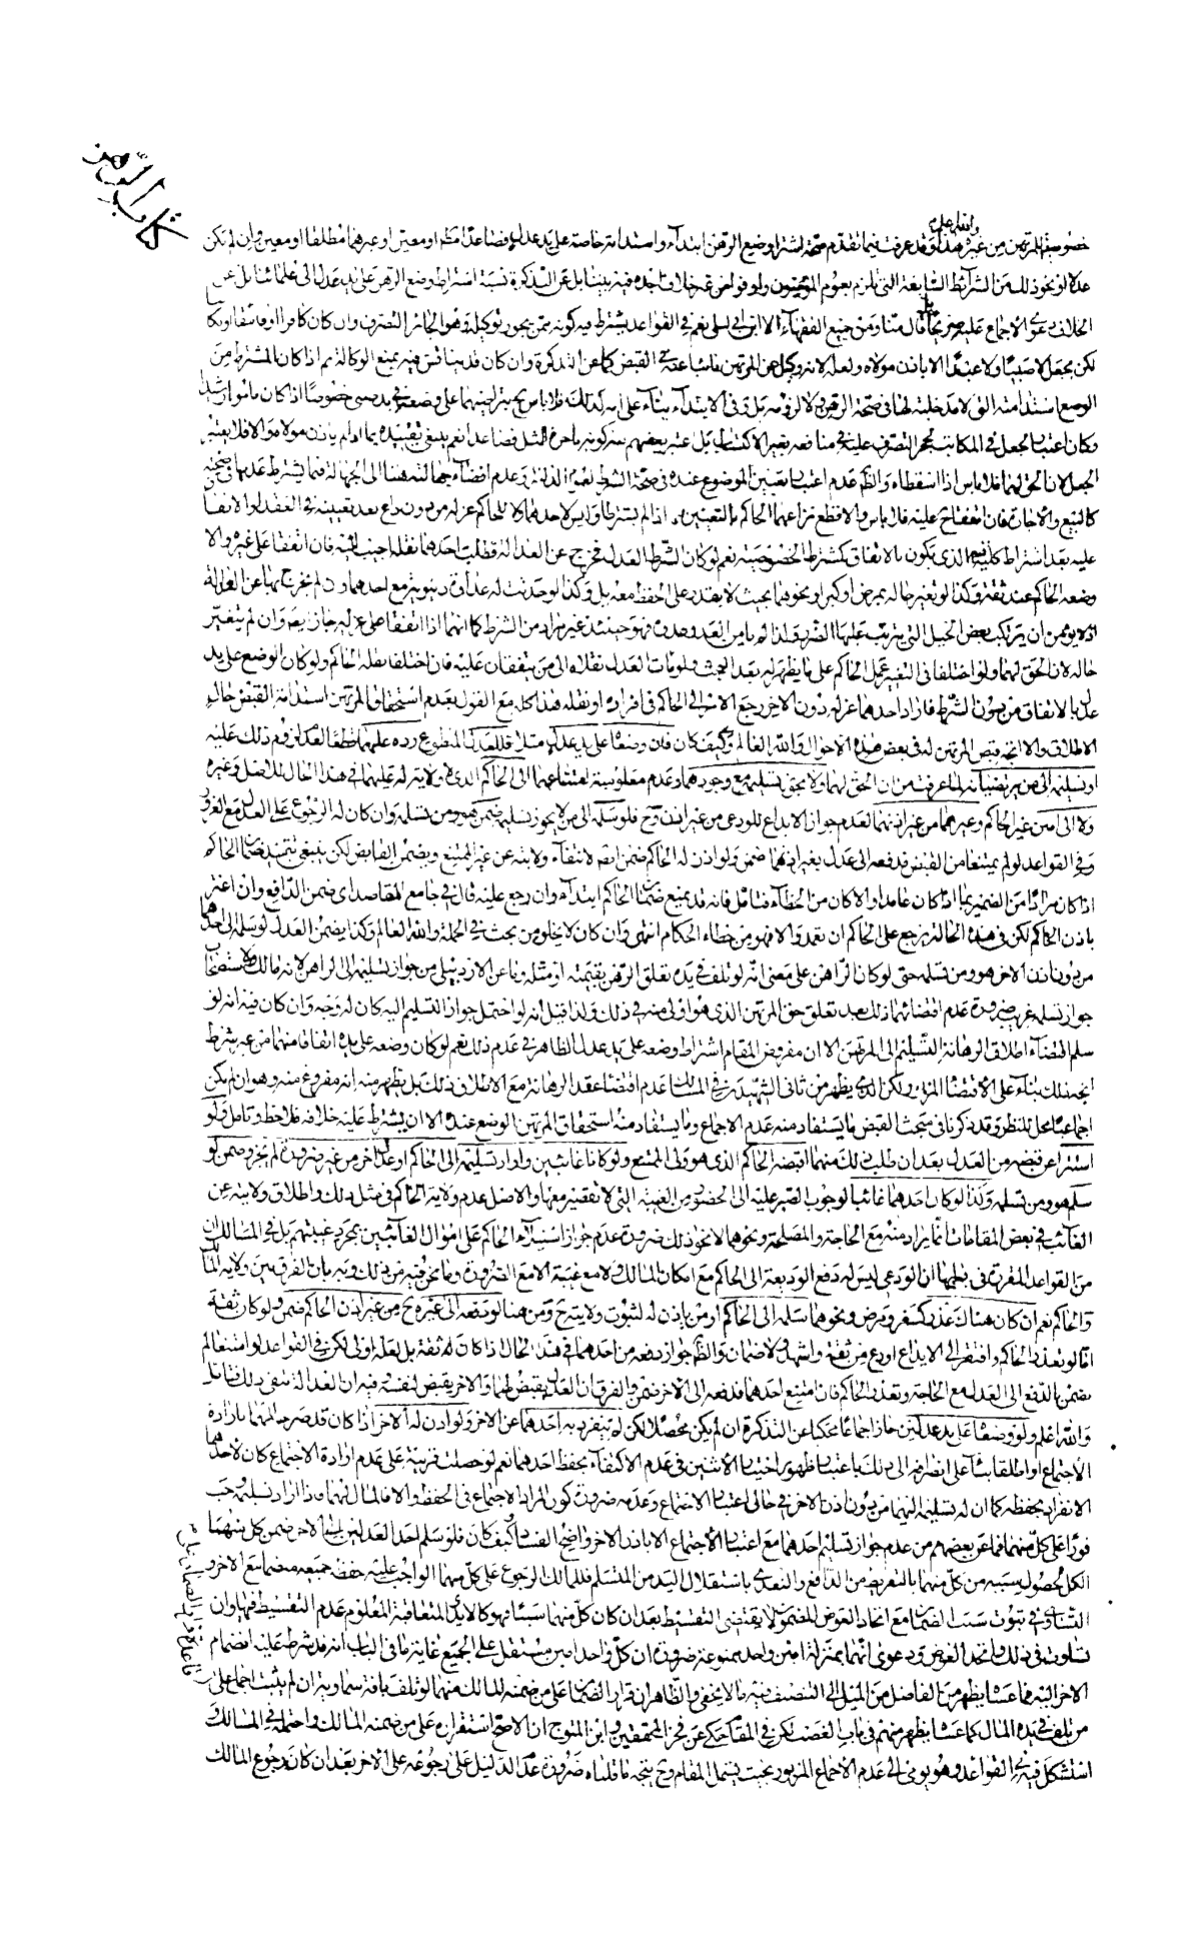 كتاب الرهن
والله اعلم
خصوص المرتهن من غير هذا وقد عرفت فيما تقدم صحة اشتراط وضع الرهن ابتداء واستدامة خاصة على يد عدل فصاعدا مطلقا او معين او غيرهما مطلقا او معين وان لم يكن
عدلا ونحو ذلك من الشرائط السايغة التي تلزم بعموم المؤمنون واوفوا من غير خلاف اجده فيه بيننا بل عن التذكرة نسبة اشتراط وضع الرهن على يد عدل الى علمائنا بل عن
الخلاف دعوى الاجماع عليه صريحا بل قال منا ومن جميع الفقهاء الا ابن ابي ليلى نعم في القواعد يشترط فيه كونه ممن يجوز توكيله وهو الجائز التصرف وان كان كافرا او فاسقا او مكاتبا
لكن بجعل لا صبيا ولا عبدا الا باذن مولاه ولعله لانه وكيل عن المرتهن في القبض كما عن التذكرة وان كان قد يناقش فيه بمنع الوكالة اذا كان المشترط من
الوضع استدامته التي لا مدخلية لها في صحة الرهن ولا لزومه بل وفي الابتداء بناء على انه كذلك فلا باس بتراضيهما على وضعه في يد صبي خصوصا اذا كان مامونا رشيدا
وكان اعتبار الجعل في المكاتب لحجر التصرف عليه في منافعه بغير الاكتساب بل عبر بعضهم نعم ينبغي تقييده بما اذا لم ياذن مولاه والا فلا يعتبر
الجعل لان الحق لهما فلا باس اذا اسقطاه والظاهر عدم اعتبار تعيين الموضوع عنده في صحة الشرط وعدم افضاء جهالته هنا الى الجهالة فيما يشترط عدمها في صحته
كالبيع والاجارة فان اتفقا عليه فلا باس والا قطع نزاعهما الحاكم بالتعيين اذا لم يشترطا وليس لاحدهما ولا للحاكم عزله من دون داع بعد تعيينه في العقد او الاتفاق
عليه بعد اشتراط كليته الذي يكون بالاتفاق كمشترط الخصوصية نعم لو كان الشرط العدل فخرج عن العدالة فطلب احدهما نقله اجيب اليه فان اتفقا على غيره والا
وضعه الحاكم عند ثقة وكذا لو تغير حاله بمرض او كبر او نحوهما بحيث لا يقدر على الحفظ معه بل وكذا لو حدثت له عداوة دنيوية مع احدهما وان لم يخرج بها عن العدالة
اذ لا يؤمن ان يرتكب بعض الحيل التي يترتب عليها الضرر ولذا لم يامن العدو عدوه فهو حينئذ غير مراد من الشرط كما انهما اذا اتفقا على عزله جاز ايضا وان لم يتغير
حاله لان الحق لهما ولو اختلفا في التغير عمل الحاكم على ما يظهر له بعد البحث ولو مات العدل نقلاه الى من يتفقان عليه فان اختلفا نقله الحاكم ولو كان الوضع على يد
عدل بالاتفاق من دون الشرط فاراد احدهما عزله دون الاخر رجع الامر الى الحاكم في اقراره او نقله هذا كله مع القول بعدم استحقاق المرتهن استدامة القبض حال
الاطلاق والا اتجه قبض المرتهن له في بعض هذه الاحوال والله العالم وكيف كان فان وضعا على يد عدل مثلا فللعدل المتطوع رده عليهما قطعا لعدم لزوم ذلك عليه
او تسليمه الى من يرتضيانه لما عرفت من ان الحق لهما ولا يجوز تسليمه مع وجودهما وعدم معلومية امتناعهما الى الحاكم الذي لا ولاية له عليهما في هذا الحال فضلا وغيره
ولا الى امين غير الحاكم وغيرهما من غير اذنهما لعدم جواز الايداع للودعي من غير اذن وحينئذ فلو سلمه الى من لا يجوز تسليمه ضمن هو ومن تسلمه وان كان له الرجوع على العدل مع الغرور
وفي القواعد لو لم يمتنعا من القبض فدفعه الى عدل بغير اذنهما ضمن ولو اذن له الحاكم ضمن ايضا لانتفاء ولايته عن غير الممتنع ويضمن القابض لكن ينبغي تقييد ضمان الحاكم
اذا كان مرادا من الضمير بما اذا كان عامدا والا كان من الخطاء فتامل فانه قد يمنع ضمان الحاكم ابتداء وان رجع عليه قال في جامع المقاصد اي ضمن الدافع وان اعتر
باذن الحاكم لكن في هذه الحالة يرجع على الحاكم ان تعمد والا فهو من خطاء الحكام انتهى وان كان لا يخلو من بحث في الجملة والله العالم وكذا يضمن العدل لو سلمه الى احدهما
من دون اذن الاخر هو ومن تسلمه حتى لو كان الراهن على معنى انه لو تلف في يده تعلق الرهن بقيمته او مثله وما عن الاردبيلي من جواز تسليمه الى الراهن لانه مالك والاستصحاب
جواز تسلمه غريب ضرورة عدم اقتضائهما ذلك بعد تعلق حق المرتهن الذي هو اولى منه في ذلك ولذا قيل انه لو احتمل جواز التسليم اليه كان له وجه وان كان فيه انه لو
سلم اقتضاء اطلاق الرهانة التسليم الى المرتهن الا ان مفروض المقام اشتراط وضعه على يد عدل الظاهر في عدم ذلك نعم لو كان وضعه على يده اتفاقا منهما من غير شرط
اتجه ذلك بناء على الاقتضاء المزبور ولكن الذي يظهر من ثاني الشهيدين في المسالك عدم اقتضاء عقد الرهانة مع الاطلاق ذلك بل يظهر منه انه مفروغ منه وهو ان لم يكن
اجماعيا محل للنظر وقد ذكرنا في مبحث القبض ما يستفاد منه عدم الاجماع وما يستفاد منه استحقاق المرتهن الوضع عنده الا ان يشترط عليه خلافه فلاحظ وتامل ولو
استترا عن قبضه من العدل بعد ان طلب ذلك منهما اقبضه الحاكم الذي هو ولي الممتنع ولو كانا غائبين واراد تسليمه الى الحاكم او عدل اخر من غير ضرورة لم يجز وضمن لو
سلم هو ومن تسلمه وكذا لو كان احدهما غائبا لوجوب الصبر عليه الى الحضور من الغيبة التي لا تقصير معها والاصل عدم ولاية الحاكم في مثل ذلك واطلاق ولايته عن
الغائب في بعض المقامات انما يراد منه مع الحاجة والمصلحة ونحوهما لا نحو ذلك ضرورة عدم جواز استيلاء الحاكم على اموال الغائبين بمجرد غيبتهم بل في المسالك ان
من القواعد المقررة في بابها ان الودعي ليس له دفع الوديعة الى الحاكم مع امكان المالك ولا مع غيبته الا مع الضرورة وما نحن فيه من ذلك وبه بان الفرق بين ولاية المالك
والحاكم نعم ان كان هناك عذر كسفر ومرض ونحوهما سلمه الى الحاكم او من ياذن له لثبوت ولايته حينئذ ومن هنا لو دفعه الى غيره حينئذ من غير اذن الحاكم ضمن ولو كان ثقة
اما لو تعذر الحاكم وافتقر الى الايداع اودع من ثقة واشهد ولا ضمان والظاهر جواز دفعه من احدهما في هذا الحال اذا كان ثقة بل لعله اولى لكن في القواعد لو امتنعا لم
يضمن بالدفع الى العدل مع الحاجة وتعذر الحاكم فان امتنع احدهما فدفعه الى الاخر ضمن والفرق ان العدل يقبض لهما والاخر يقبض لنفسه وفيه ان العدالة تنفي ذلك فتامل
والله اعلم ولو وضعا على يد عدلين جاز اجماعا محكيا عن التذكرة ان لم يكن محصلا لكن لم ينفرد به احدهما عن الاخر ولو اذن له الاخر اذا كان قد صرح لهما بارادة
الاجتماع او اطلقا بناء على انصرافه الى ذلك باعتبار ظهور اختيار الاثنين في عدم الاكتفاء بحفظ احدهما نعم لو حصلت قرينة على عدم ارادة الاجتماع كان لاحدهما
الانفراد بحفظه كما ان له تسليمه اليهما من دون اذن الاخر في حالي اعتبار الاجتماع وعدمه ضرورة كون المراد الاجتماع في الحفظ والا فالمال لهما فاذا اراد تسليمه وجب
فورا على كل منهما فما عن بعضهم من عدم جواز تسليم احدهما مع اعتبار الاجتماع الا باذن الاخر واضح الفساد وكيف كان فلو سلم احد العدلين الى الاخر ضمن كل منهما
الكل لحصول سببه من كل منهما بالتفريط من الدافع والتعدي باستقلال اليد من المتسلم فللمالك الرجوع على كل منهما الواجب عليه حفظ جميعه منضما مع الاخر و
التساوي في ثبوت سبب الضمان مع اتحاد العوض المضمون لا يقتضي التقسيط بعد ان كان كل منهما سببا تاما وهو كالايدي المتعاقبة المعلوم عدم التقسيط فيها وان
تساوت في ذلك واتحد العوض ودعوى انهما بمنزلة امين واحد ممنوعة ضرورة ان كل واحد امين مستقل على الجميع غاية ما في الباب انه قد شرط عليه انضمام
الاخر اليه فما عساه يظهر من الفاضل من الميل الى التنصيف فيه ما لا يخفى والظاهر ان قرار الضمان على من ضمنه المالك منهما لو تلف بافة سماوية ان لم يثبت اجماع على
من تلف في يده المال كما عساه يظهر منهم في باب الغصب لكن في المقام حكي عن فخر المحققين وابن المتوج ان الاصح استقراره على من ضمنه المالك واحتمله في المسالك و
استشكل فيه في القواعد وهو يومي الى عدم الاجماع المزبور بحيث يشمل المقام وحينئذ يتجه ما قلناه ضرورة عدم الدليل على رجوعه على الاخر بعد ان كان رجوع المالك